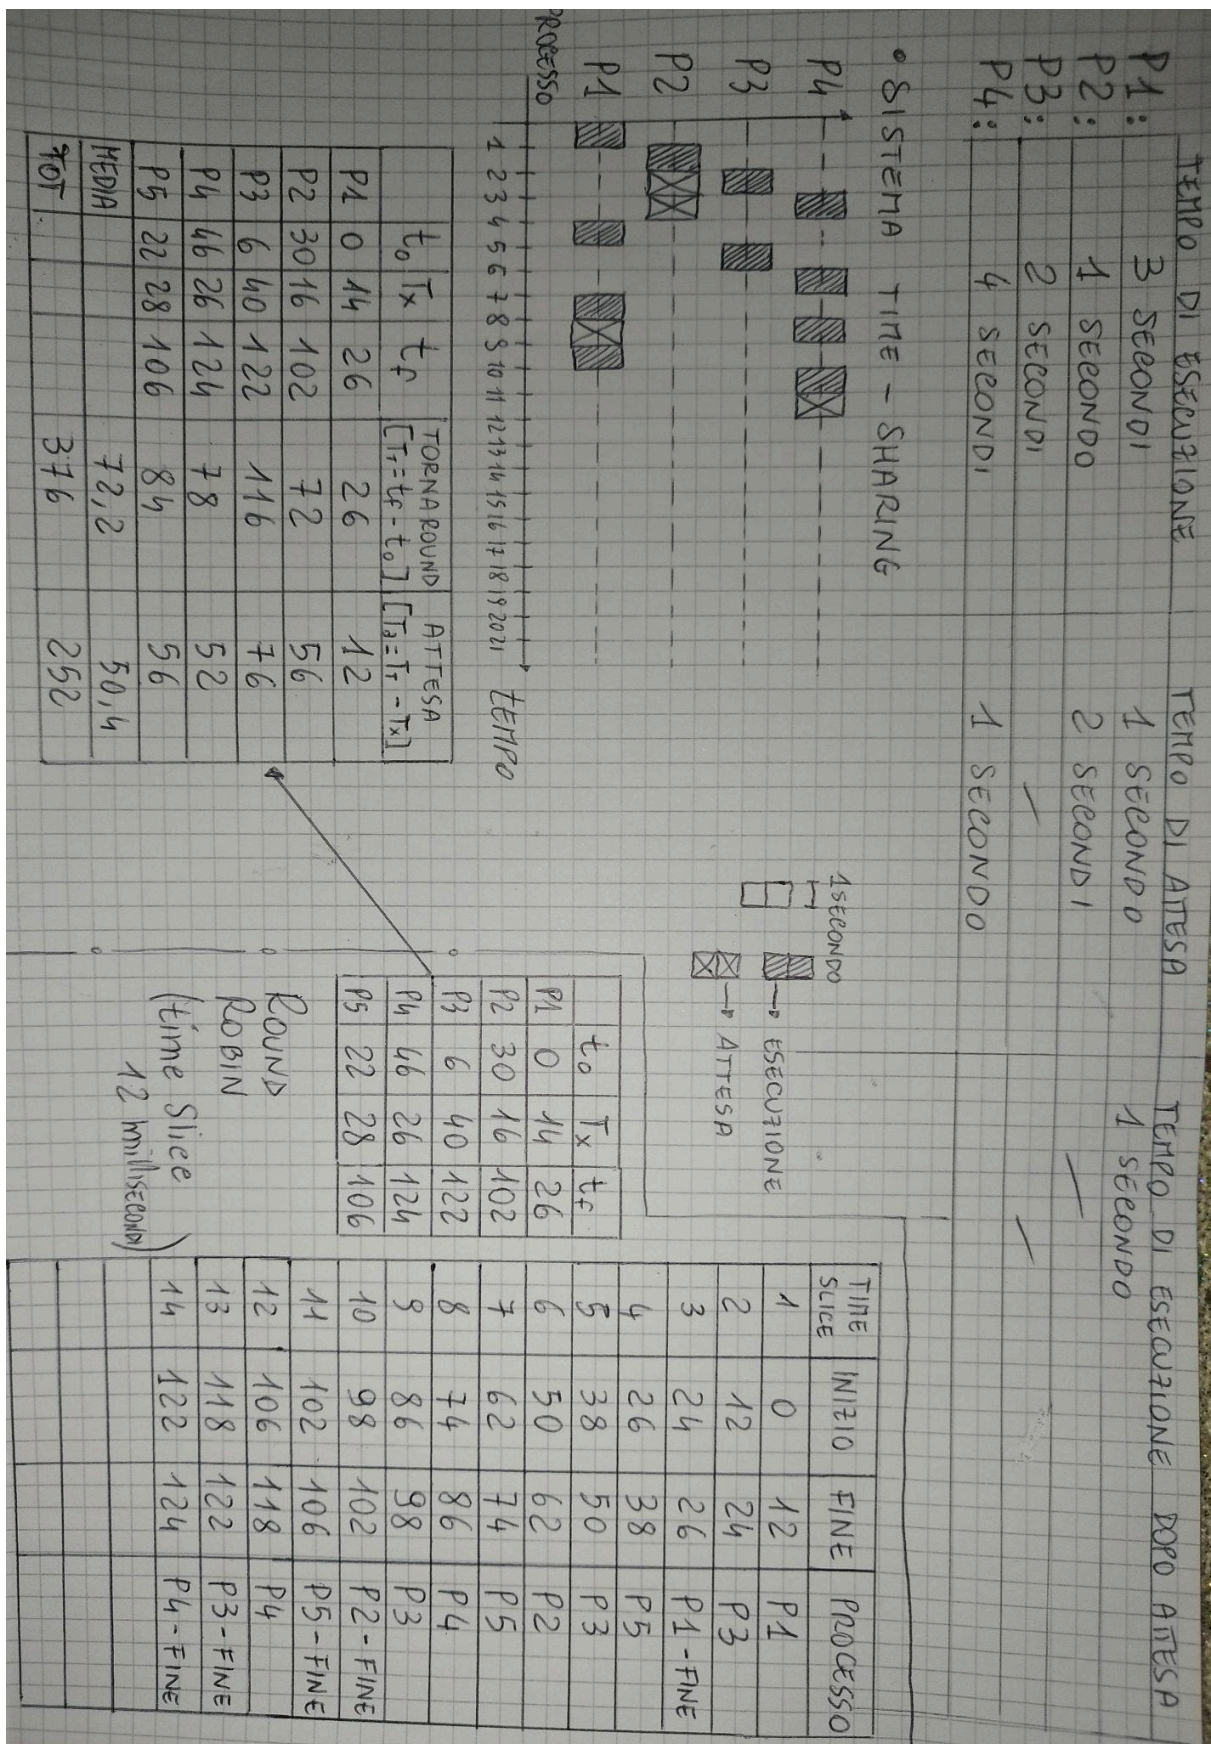 TEMPO DI ESECUZIONE TEMPO DI ATTESA TEMPO DI ESECUZIONE DOPO ATTESA
P1: 3 SECONDI 1 SECONDO 1 SECONDO
P2: 1 SECONDO 2 SECONDI —
P3: 2 SECONDI — —
P4: 4 SECONDI 1 SECONDO
• SISTEMA TIME-SHARING
P4
P3
P2
P1
PROCESSO
1 2 3 4 5 6 7 8 9 10 11 12 13 14 15 16 17 18 19 20 21 tEMPO
1 SECONDO
→ ESECUZIONE
→ ATTESA
to Tx tf TORNAROUND [Tr=tf-to] ATTESA [Ta=Tr-Tx]
P1 0 14 26 26 12
P2 30 16 102 72 56
P3 6 40 122 116 76
P4 46 26 124 78 52
P5 22 28 106 84 56
MEDIA 72,2 50,4
TOT 376 252
to Tx tf
P1 0 14 26
P2 30 16 102
P3 6 40 122
P4 46 26 124
P5 22 28 106
ROUND
ROBIN
(time Slice
12 millisecondi)
TIME SLICE INIZIO FINE PROCESSO
1 0 12 P1
2 12 24 P3
3 24 26 P1-FINE
4 26 38 P5
5 38 50 P3
6 50 62 P2
7 62 74 P5
8 74 86 P4
9 86 98 P3
10 98 102 P2-FINE
11 102 106 P5-FINE
12 106 118 P4
13 118 122 P3-FINE
14 122 124 P4-FINE